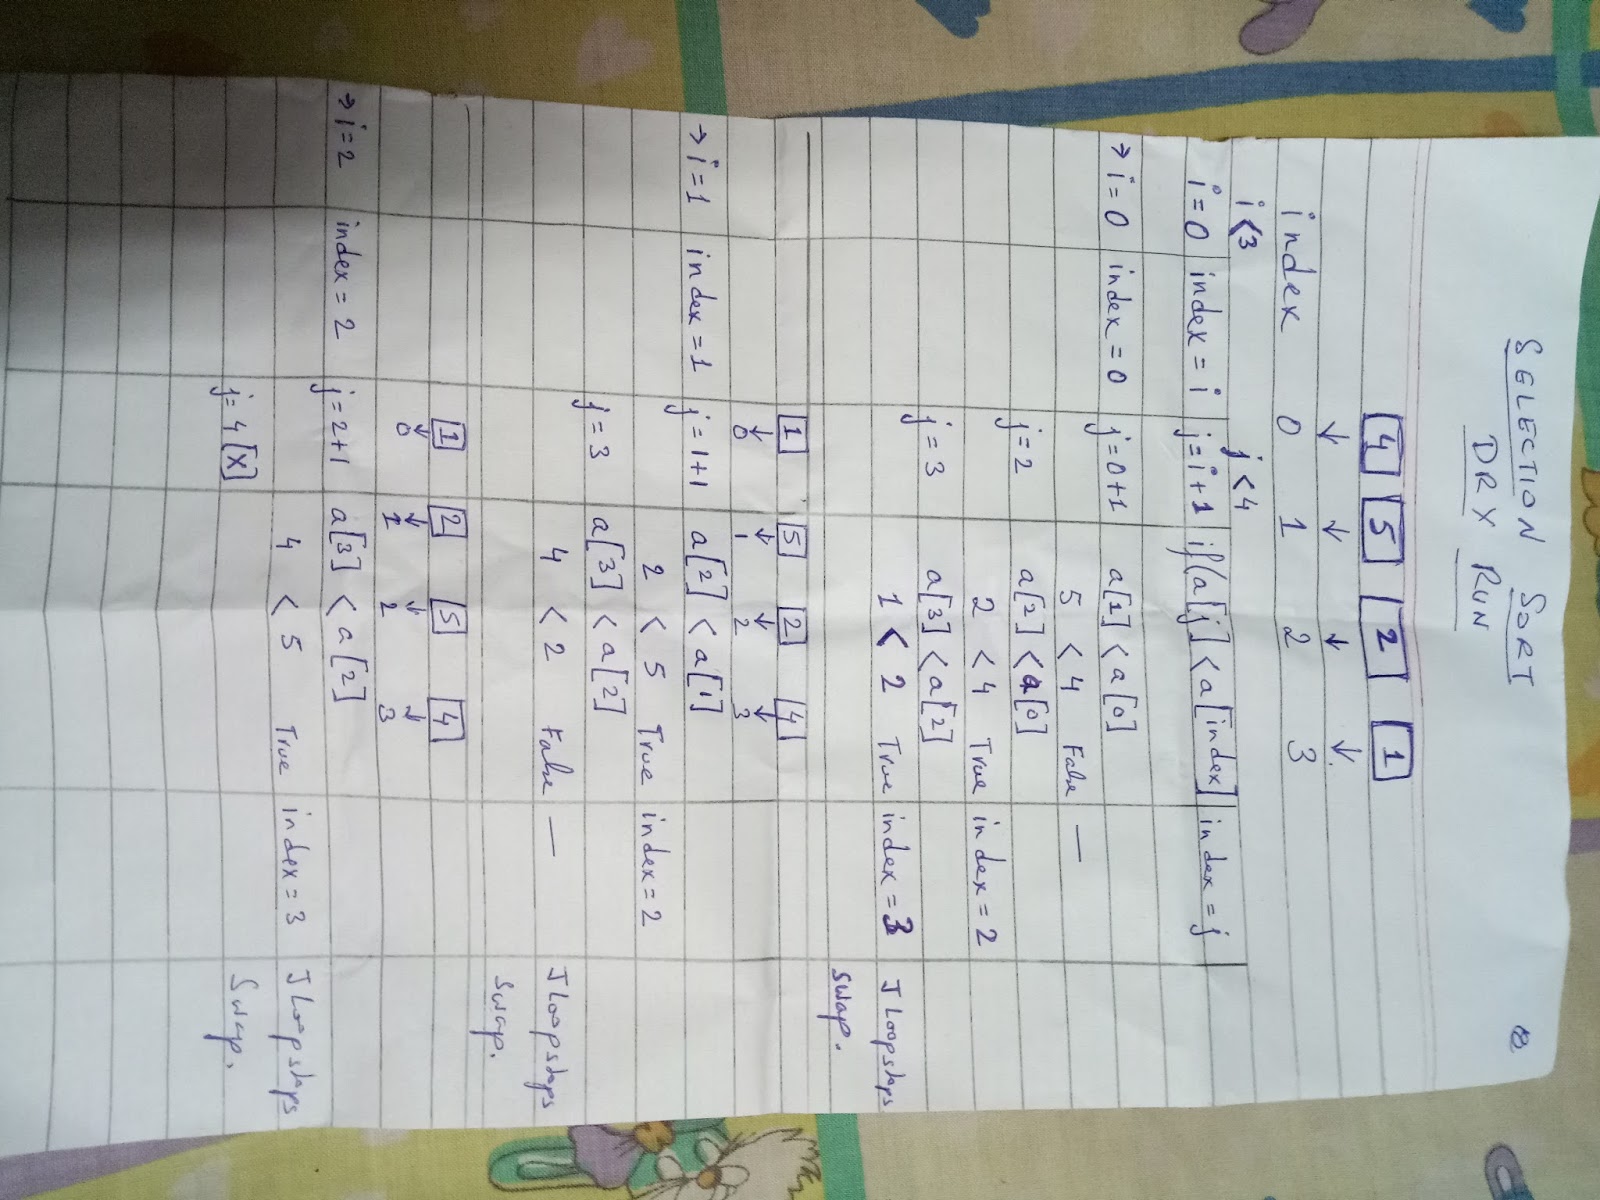 8
SELECTION SORT
DRY RUN
4 5 2 1
↓ ↓ ↓ ↓
index 0 1 2 3
i<3 j<4
i=0 index=i j=i+1 if(a[j]<a[index] index=j
→ i=0 index=0 j=0+1 a[1]<a[0]
5<4 False —
j=2 a[2]<a[0]
2<4 True index=2
j=3 a[3]<a[2]
1<2 True index=3 J Loop stops
Swap.
1 5 2 4
↓ ↓ ↓ ↓
0 1 2 3
→ i=1 index=1 j=1+1 a[2]<a[1]
2<5 True index=2
j=3 a[3]<a[2]
4<2 False — J Loop stops
Swap.
1 2 5 4
↓ ↓ ↓ ↓
0 1 2 3
→ i=2 index=2 j=2+1 a[3]<a[2]
4<5 True index=3 J Loop stops
j=4[x] Swap.